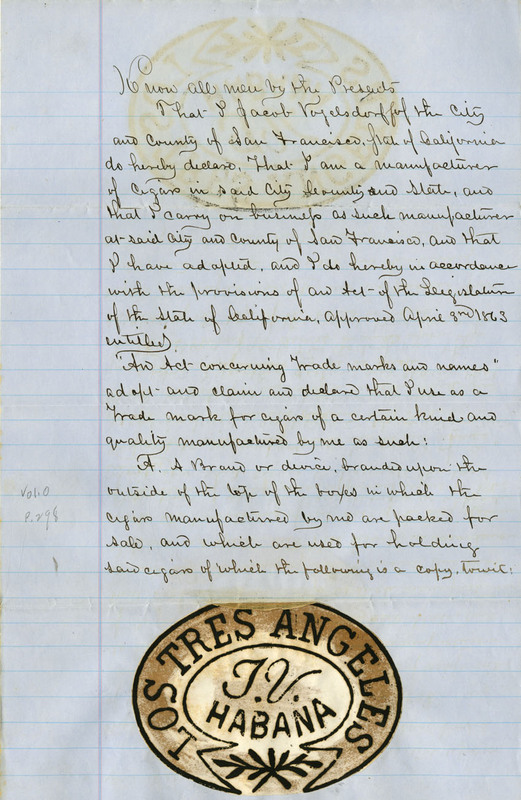 Know all men by the Presents
That I Jacob Vogelsdorff of the City
and County of San Francisco, Stat of California
do hereby declare, That I am a manufacturer
of Cigars in said City County and State, and
that I carry on business as such manufacturer
at said City and County of San Francisco, and that
I have adopted, and I do hereby in accordance
with the provisions of an Act of the Legislature
of the State of California, approved April 3rd 1863
entitled
"An Act concerning Trade marks and names"
adopt and claim and declare that I use as a
Trade mark for cigars of a certain kind and
quality manufactured by me as such:
A. A Brand or device, branded upon the
outside of the top of the boxes in which the
cigars manufactured by me are packed for
sale, and which are used for holding
said cigars of which the following is a copy, towit:
Vol. 0
P. 298
LOS TRES ANGELES
J.V.
HABANA